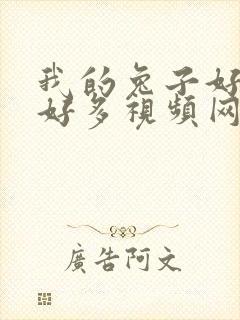 我的兔子好
好多視頻网
廣告阿文